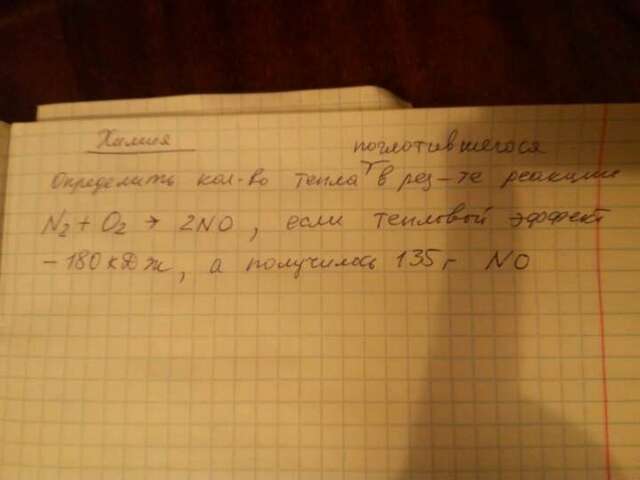 Химия
поглотившегося
Определить кол-во тепла в рез-те реакции
N2 + O2 → 2NO, если тепловой эффект
-180 кДж, а получилось 135 г NO